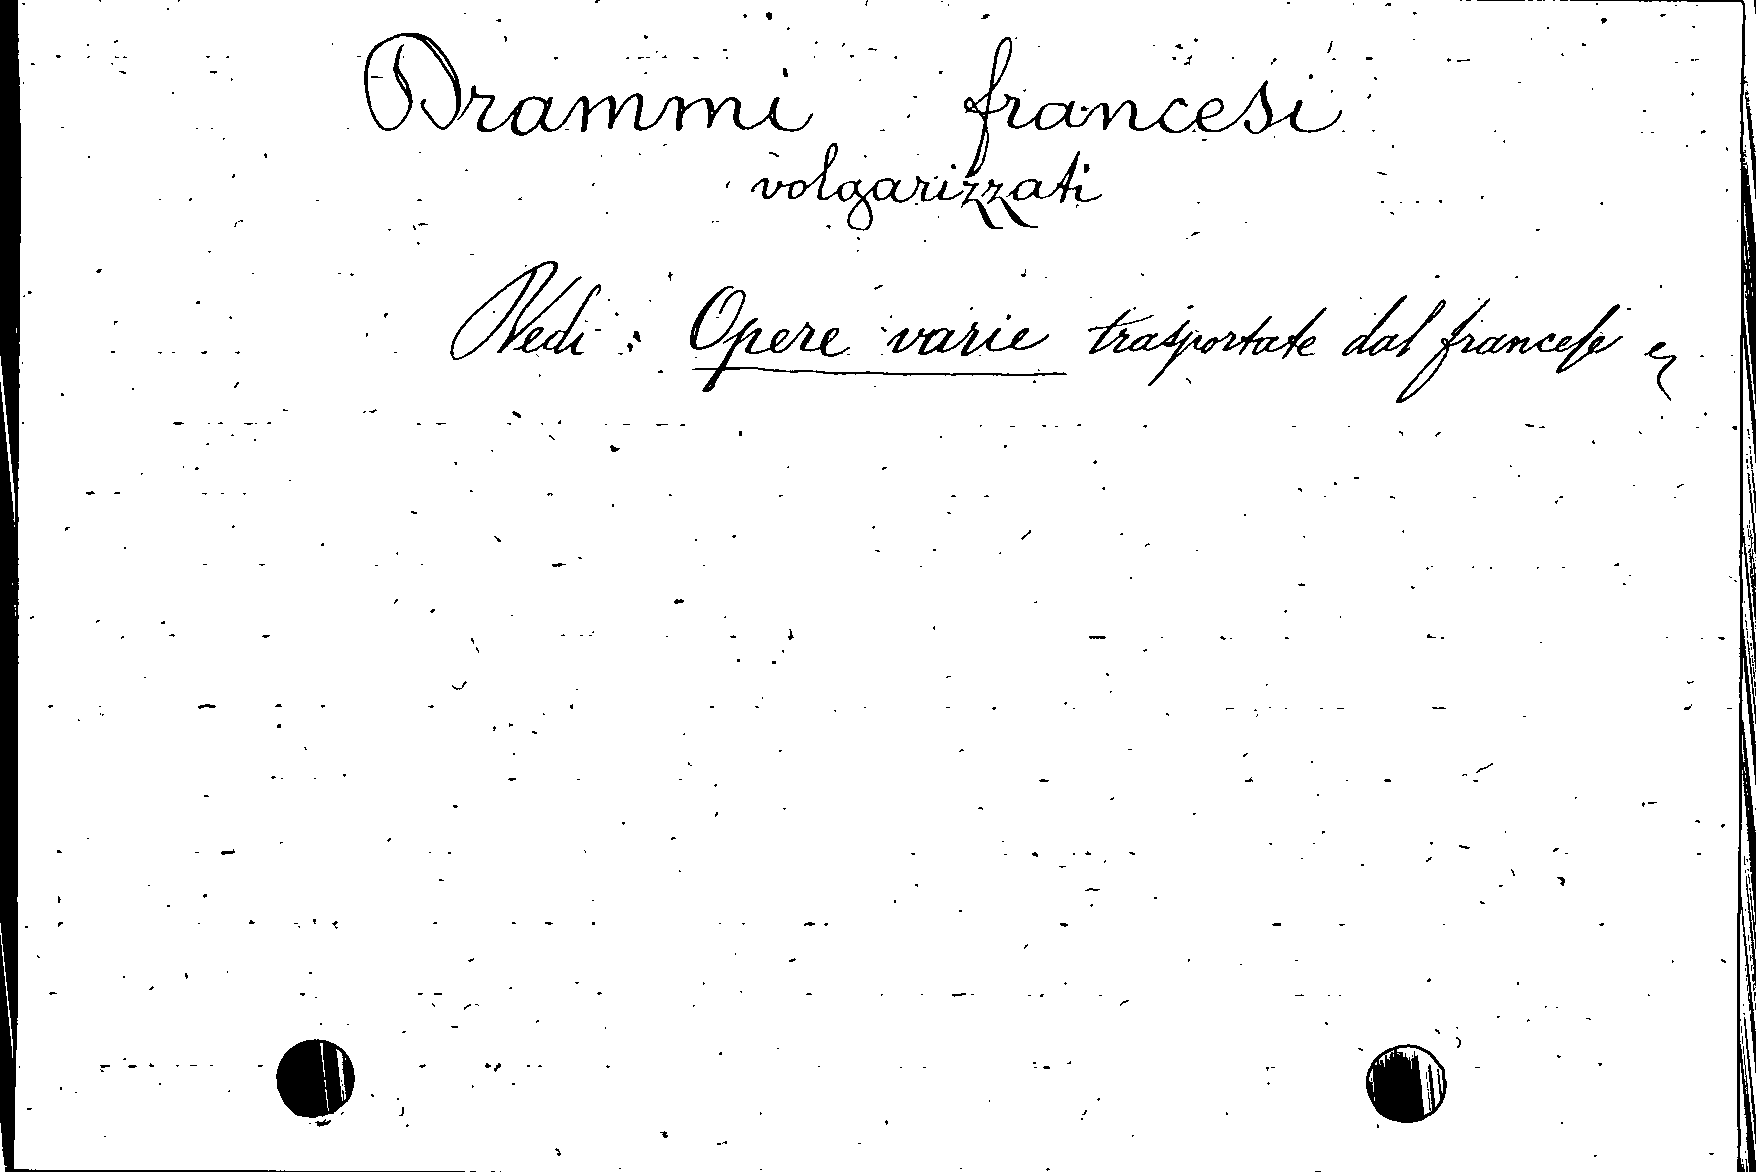 Drammi francesi
volgarizzati
Vedi : Opere varie trasportate dal francese